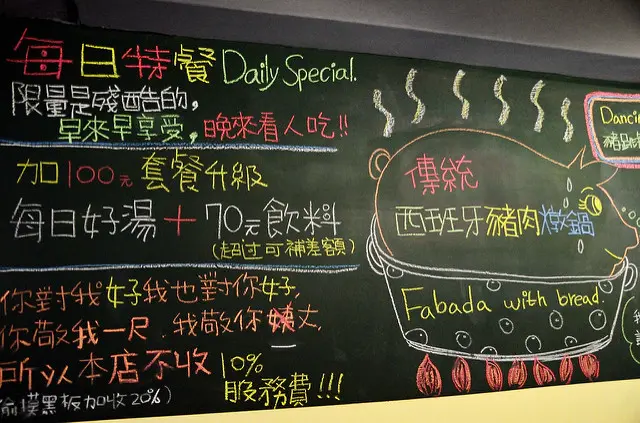 每日特餐 Daily Special.
限量是殘酷的,
早來早享受,晚來看人吃!!
加100元 套餐升級
每日好湯+70元飲料
(超过可補差額)
你對我好我也對你好,
你敬我一尺.我敬你 丈
所以本店不收10%
服務費!!!
偷摸黑板加收20%)
Dancin
傳統
西班牙豬肉燉鍋
Fabada with bread.